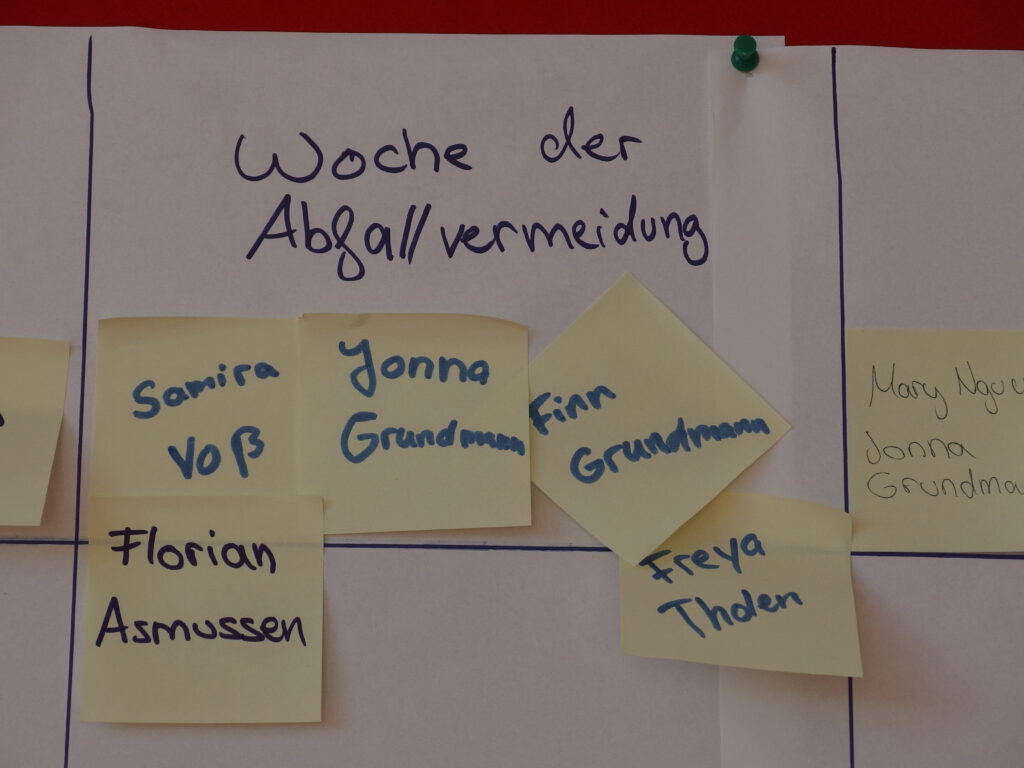 Woche der
Abfallvermeidung
Samira
Voß
Jonna
Grundmann
Finn
Grundmann
Florian
Asmussen
Freya
Tholen
Mary
Jonna